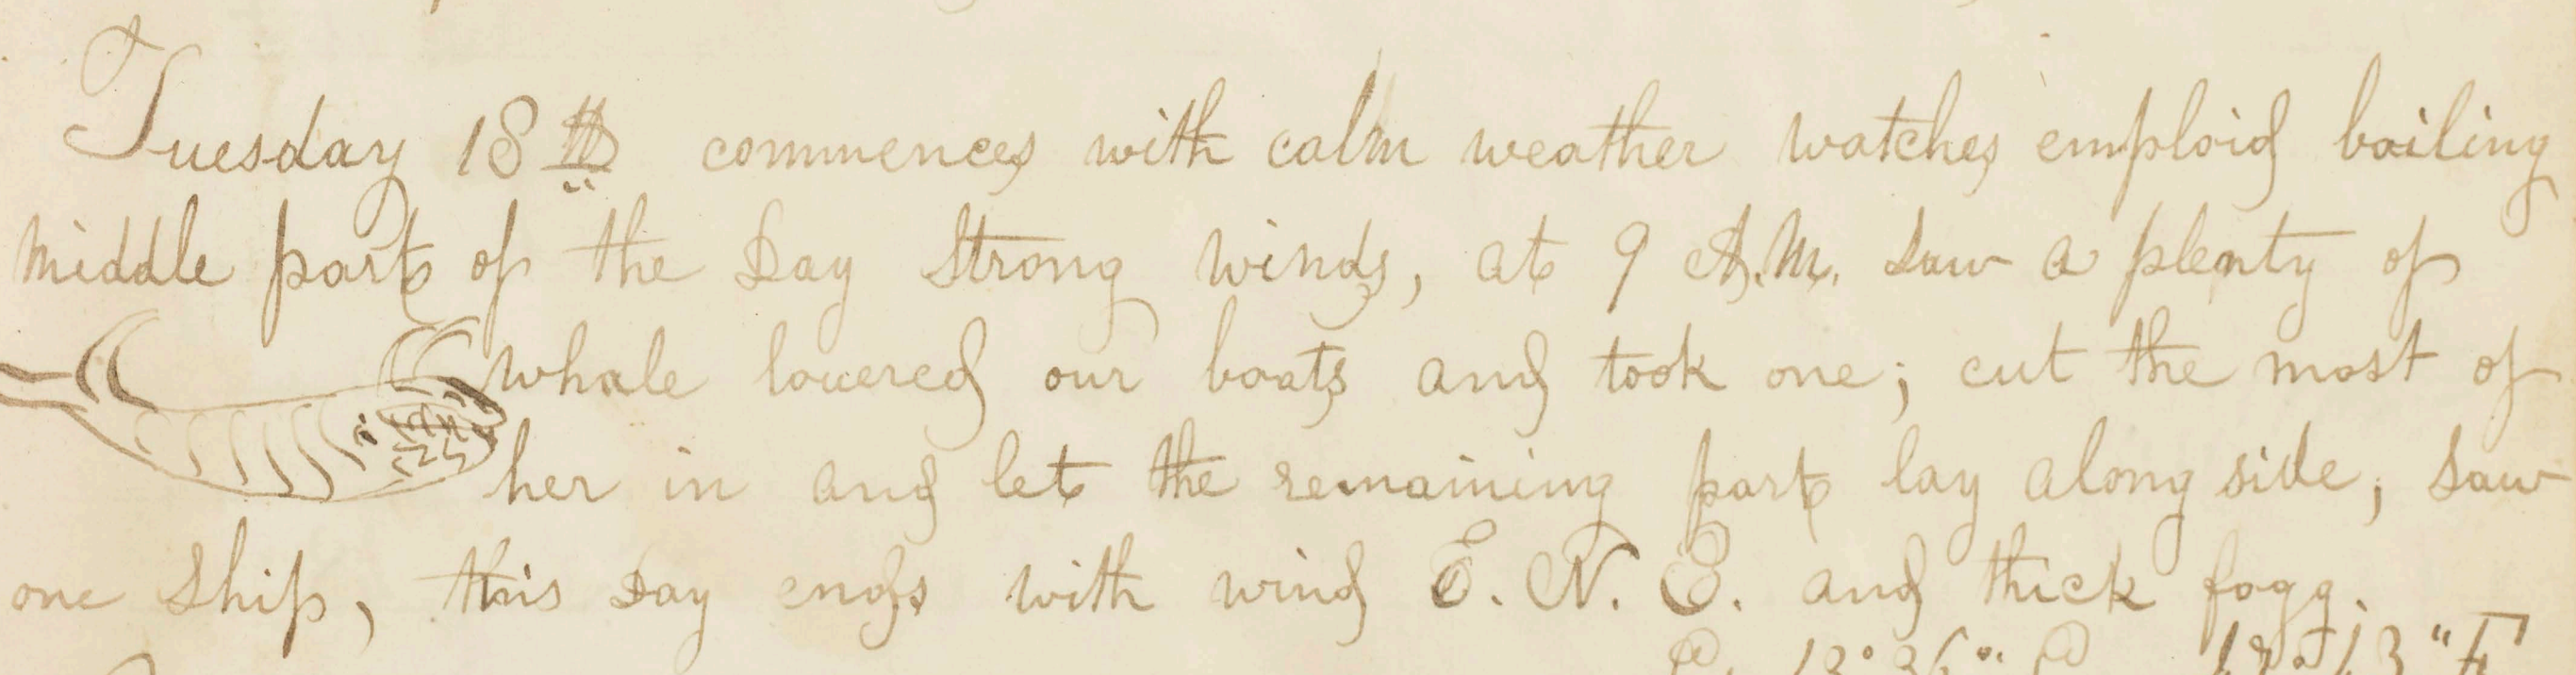 Tuesday 18th commences with calm weather watches emploid boiling
middle part of the Day Strong winds, at 9 A.M. Saw a plenty of
whale lowered our boats and took one; cut the most of
her in and let the remaining part lay along side, Saw
one Ship, this Day ends with wind E. N. E. and thick fogg.